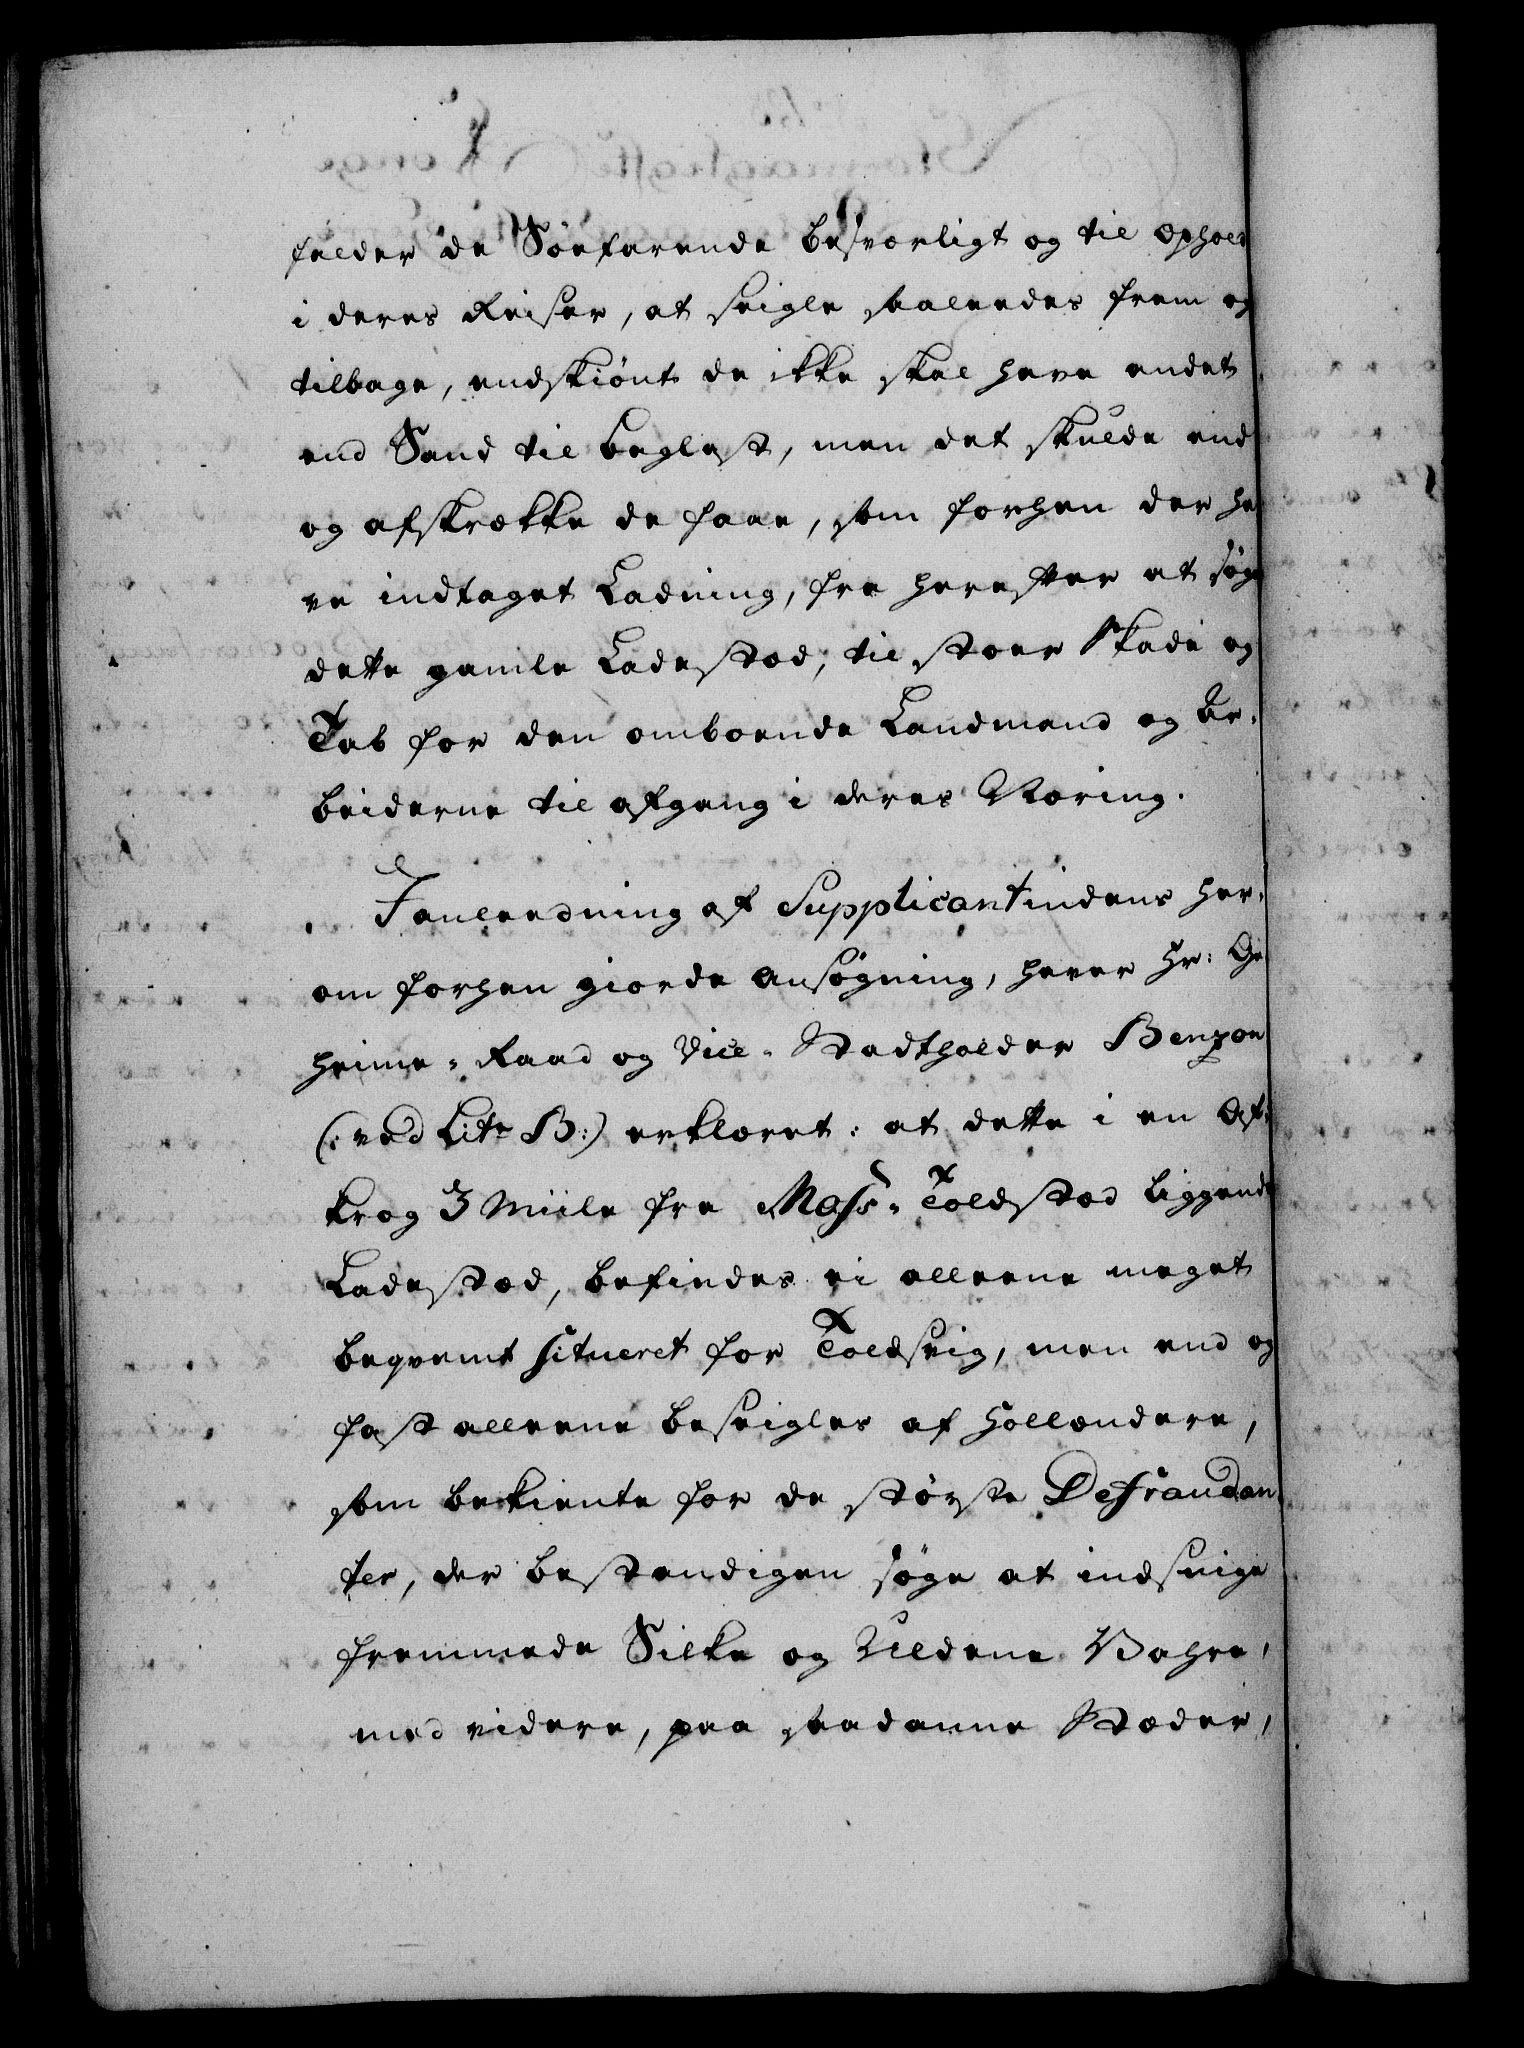 falder de Söefarende besværligt og til ophold
i deres Reiser, at seigle saaleedes frem og
tilbage, endskiönt de ikke skal have andet
end Sand til baglast, men det skulde end
og afskrække de faae, som forhen der ha
ve indtaget Ladning, fra herefter at søge
dette gamle Ladestæd, til stoer Skade og
Tab for den omboende Landmand og Ar-
beiderne til afgang i deres Næring.
I anleedning af Supplicantindens her-
om forhen giorde Ansøgning, haver Hr: Ge
heime-Raad og Vice-Stadtholder Benzon
(: ved Litr B:) erklæret: at dette i en Af-
krog 3 Miile fra Moss-Toldstæd liggende
Ladestæd, befindes ei alleene meget
beqvemt situeret for Toldsvig, men end og
fast alleene beseigles af Hollændere,
som bekiente for de største Defraudan
ter, der bestandigen søge at indsnige
fremmede Silke og Uldene Vahre,
med videre, paa saadanne Stæder,